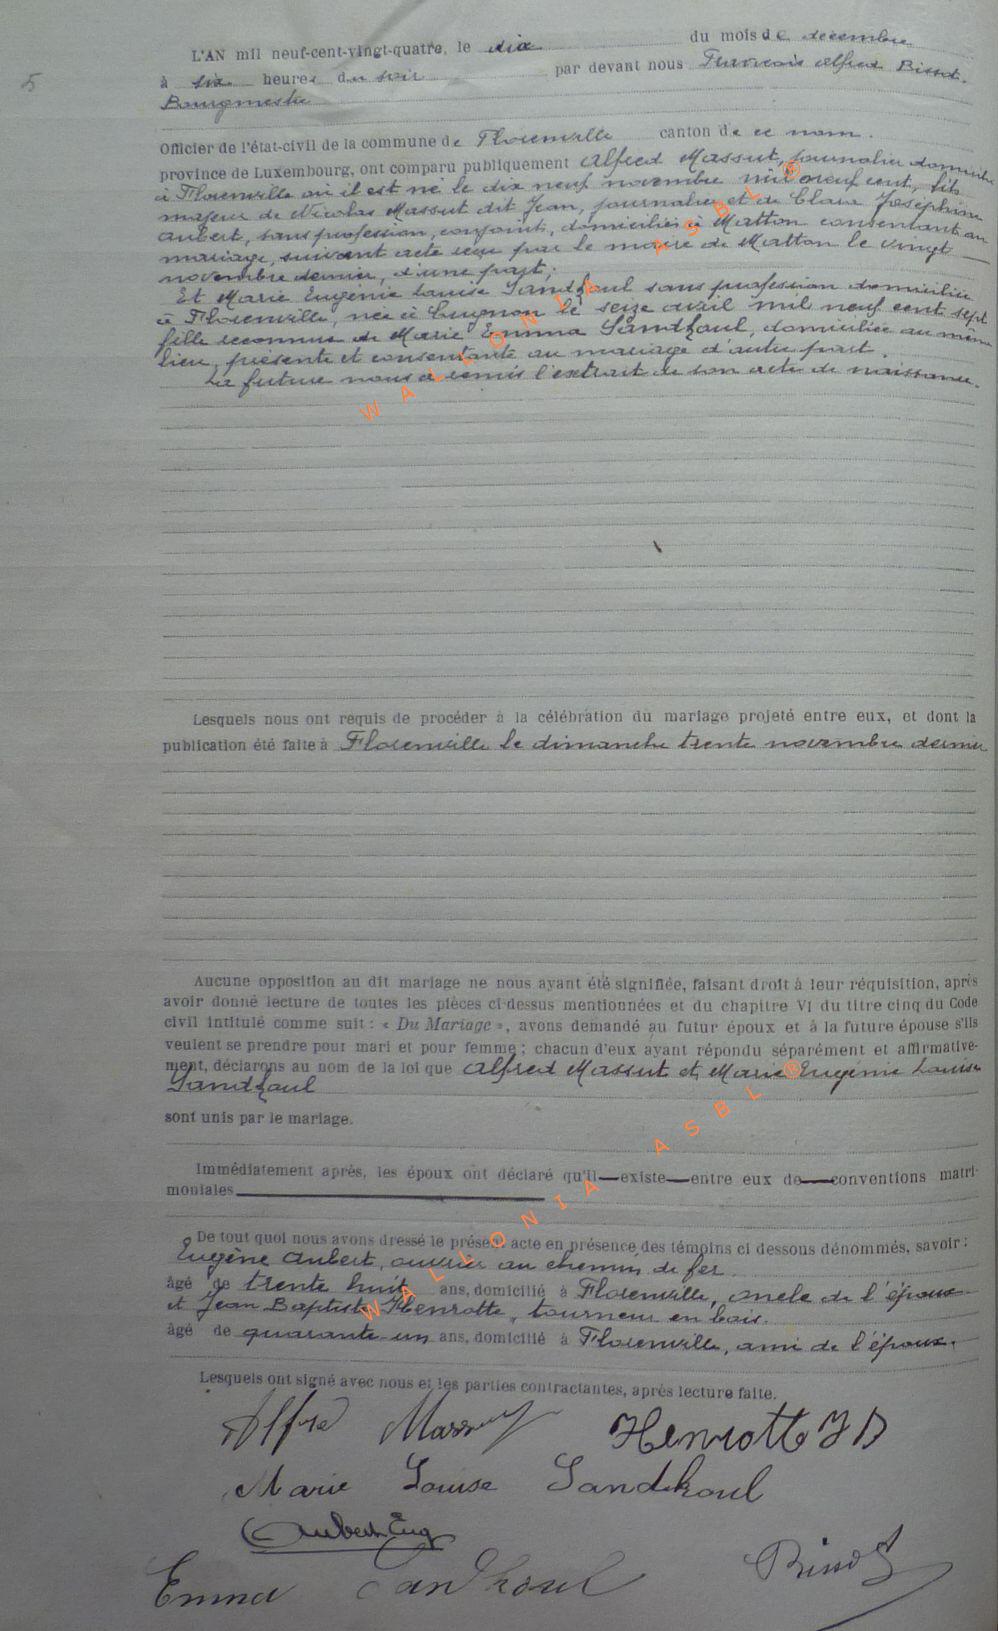 5
L'AN mil neuf-cent-vingt-quatre, le dix du mois de decembre
à six heures du soir par devant nous François Alfred Bissot.
Bourgmestre
Officier de l'état-civil de la commune de Florenville canton de ce nom.
province de Luxembourg, ont comparu publiquement Alfred Massut, journalier domicilié
à Florenville où il est né le dix neuf novembre mil neuf cent, fils
majeur de Nicolas Massut dit Jean, journalier et de Clara Joséphine
Aubert, sans profession, conjoints, domiciliés à Matton consentant au
mariage, suivant acte reçu par le maire de Matton le vingt
novembre dernier, d'une part;
Et Marie Eugénie Louise Sandkoul sans profession domiciliée
à Florenville, née à Cugnon le seize avril mil neuf cent sept
fille reconnue de Marie Emma Sandkoul, domiciliée au même
lieu, présente et consentante au mariage d'autre part.
La future nous a remis l'extrait de son acte de naissance.
WALLONIA ASBL ®
Lesquels nous ont requis de procéder à la célébration du mariage projeté entre eux, et dont la
publication été faite à Florenville le dimanche trente novembre dernier
Aucune opposition au dit mariage ne nous ayant été signifiée, faisant droit à leur réquisition, après
avoir donné lecture de toutes les pièces ci-dessus mentionnées et du chapitre VI du titre cinq du Code
civil intitulé comme suit : « Du Mariage », avons demandé au futur époux et à la future épouse s'ils
veulent se prendre pour mari et pour femme ; chacun d'eux ayant répondu séparément et affirmative-
ment, déclarons au nom de la loi que Alfred Massut et Marie Eugénie Louise
Sandkoul
sont unis par le mariage.
Immédiatement après, les époux ont déclaré qu'il existe entre eux de conventions matri-
moniales
De tout quoi nous avons dressé le présent acte en présence des témoins ci dessous dénommés, savoir :
Eugène Aubert, ouvrier au chemin de fer
âgé de trente huit ans, domicilié à Florenville, oncle de l'époux
et Jean Baptiste Henrotte, tourneur en bois.
âgé de quarante-un ans, domicilié à Florenville, ami de l'époux.
WALLONIA ASBL ®
Lesquels ont signé avec nous et les parties contractantes, après lecture faite.
Alfred Massut Henrotte J B
Marie Louise Sandkoul
Aubert Eug
Emma Sandkoul Bissot